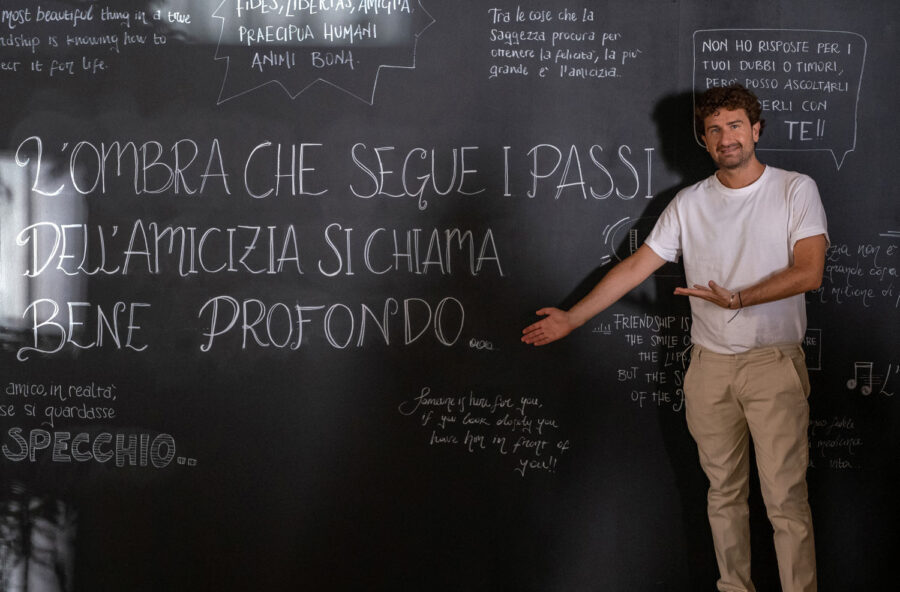 most beautiful thing in a true
friendship is knowing how to
respect it for life.
FIDES, LIBERTAS, AMICITIA
PRAECIPUA HUMANI
ANIMI BONA.
Tra le cose che la
Saggezza procura per
ottenere la felicità, la più
grande è l'amicizia..
NON HO RISPOSTE PER I
TUOI DUBBI O TIMORI,
PERÒ POSSO ASCOLTARLI
CON
TE!!
L'OMBRA CHE SEGUE I PASSI
DELL'AMICIZIA SI CHIAMA
BENE PROFONDO.....
amico, in realtà,
se si guardasse
SPECCHIO...
Someone is here for you,
if you look closely you
have him in front of
you!!
FRIENDSHIP IS
THE SMILE
THE LIPS
BUT THE
OF THE
non è
grande cosa
milione di
medicina
vita..
L'